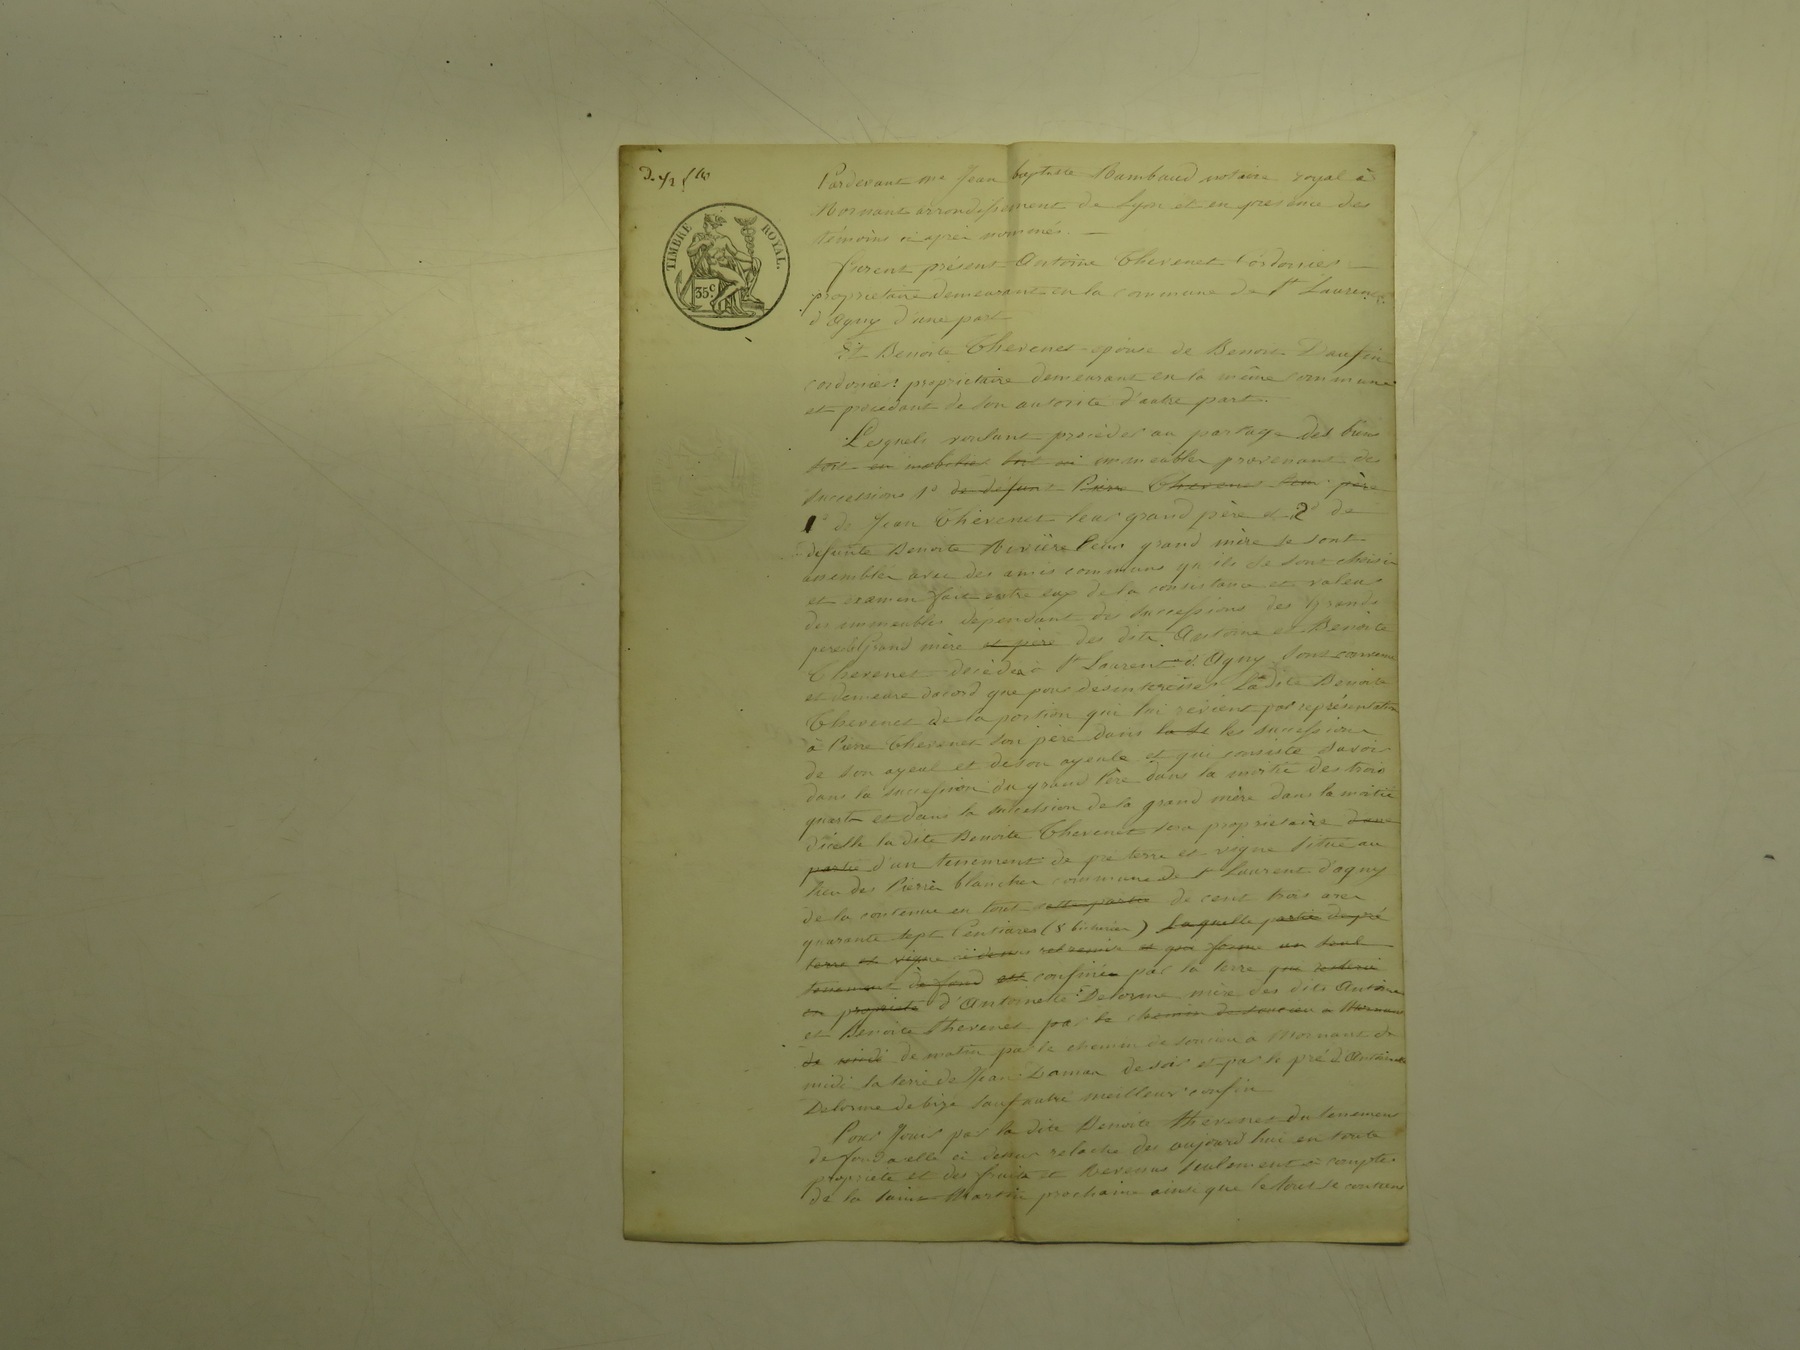 TIMBRE ROYAL.
35c.
Pardevant me Jean baptiste Rambaud notaire royal à
Mornant arrondissement de Lyon et en presence des
témoins ci après nommés. —
furent présent Antoine Thevenet Cordonier —
proprietaire demeurant en la commune de St Laurent
d'Agny d'une part
Et Benoite Thevenet epouse de Benoit Daufin
cordonier proprietaire demeurant en la même commune
et procédant de son autorité d'autre part.
Lesquels voulant procéder au partage des biens
soit en mobilier soit en immeubles provenant des
successions 1° de défunt Pierre Thevenet leur père
1° de Jean Thevenet leur grand père et 2° de
defunte Benoite Rivière leur grand mère se sont
assemblés avec des amis communs qu'ils se sont choisis
et examen fait entre eux de la consistance et valeur
des immeubles dépendant des successions des Grands
pere et Grand mère et père des dits Antoine et Benoite
Thevenet décédés à St Laurent d'Agny sont convenu
et demeure dacord que pour desintéresser La dite Benoite
Thevenet de la portion qui lui revient par représentation
à Pierre Thevenet son père dans la st les successions
de son ayeul et de son ayeule et qui consiste savoir
dans la succession du grand Père dans la moitié des trois
quarts et dans la succession de la grand mère dans la moitié
d'icelle la dite Benoite Thevenet sera proprietaire d'une
partie d'un tenement de pre terre et vigne situé au
lieu des Pierres blanches commune de St Laurent d'agny
de la contenue en tout cette partie de cent trois ares
quarante sept Centiares (8 bicherées) Laquelle partie de pré
terre et vigne ci dessus et qui forme un seul
tenement de fond est confinée par la terre qui
en propriété d'Antoinette Delorme mère des dits Antoine
et Benoite Thevenet par le chemin de soucieu a Mornant
de midi de matin par le chemin de soucieu à Mornant de
midi la terre de Jean Damas de soir et par le pré d'Antoinette
Delorme de bize sauf autre meilleur confin
Pour Jouir par la dite Benoite thevenet du tenement
de fond a elle ci dessus relaché des aujourd'hui en toute
propriété et des fruits et Revenus seulement à compter
de la saint Martin prochaine ainsi que le tout se contient